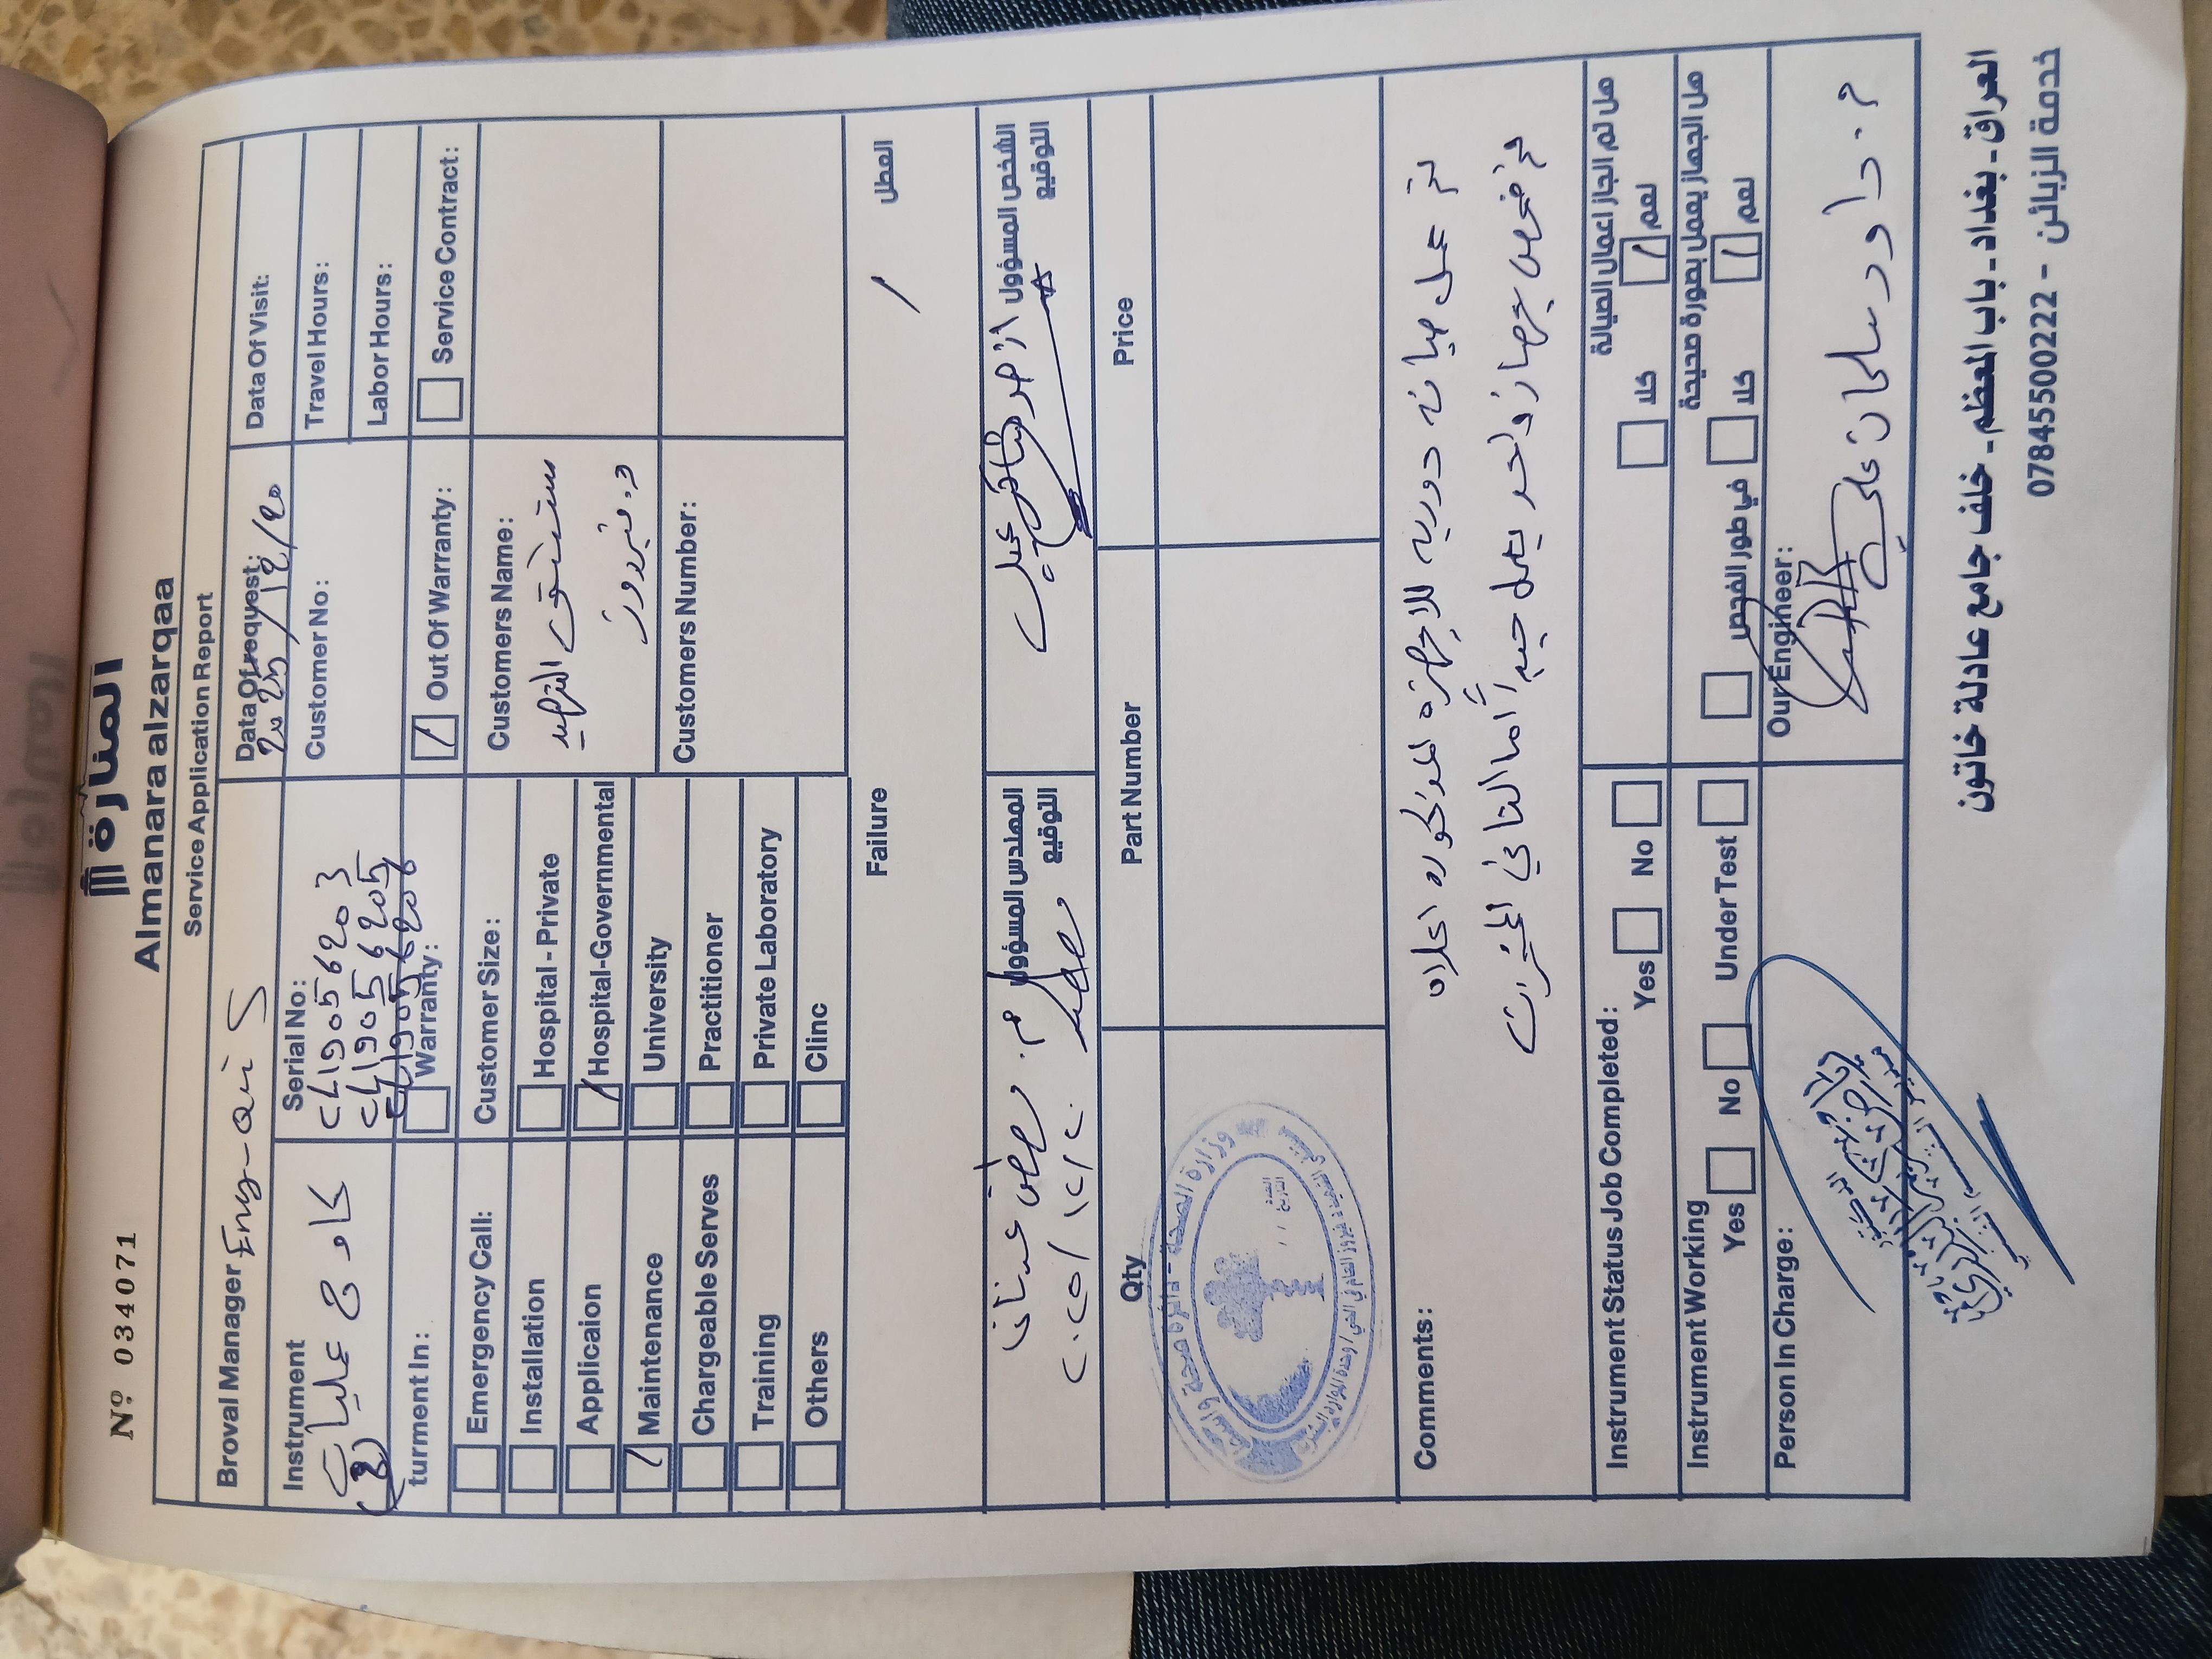 Nº 034071
المنارة
Almanara alzarqaa
Service Application Report
Broval Manager
Data Of request: 2025/12/20
Data Of Visit:
Instrument
كاوچ عمليات (3)
Serial No:
CL19056203
CL19056205
CL19056206
Customer No:
Travel Hours:
Labor Hours:
turment In:
Warranty:
Out Of Warranty:
Service Contract:
Emergency Call:
Installation
Applicaion
Maintenance
Chargeable Serves
Training
Others
Customer Size:
Hospital - Private
Hospital-Governmental
University
Practitioner
Private Laboratory
Clinc
Customers Name:
مستشفى الشهيد
د. فيروز
Customers Number:
Failure
العطل
المهندس المسؤول
التوقيع
م. مصطفى عدنان
٢٠٢٥/١٢/٢٠
الشخص المسؤول
التوقيع
Qty
Part Number
Price
Comments:
تم عمل صيانة دورية للاجهزة المذكورة اعلاه
تم فحص جهاز واحد يعمل جيداً أما الثاني
Instrument Status Job Completed :
Yes
No
هل تم انجاز اعمال الصيانة
كلا
نعم
Instrument Working
Yes
No
Under Test
هل الجهاز يعمل بصورة صحيحة
في طور الفحص
كلا
نعم
Person In Charge:
Our Engineer:
م. داود سلمان علي
العراق - بغداد - باب المعظم - خلف جامع عادلة خاتون
خدمة الزبائن - 07845500222